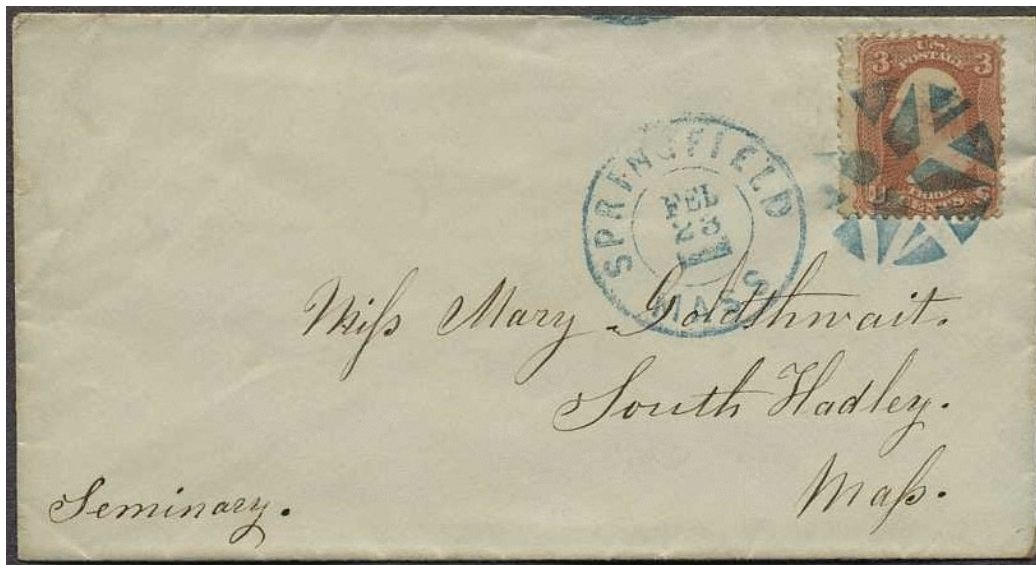 3 U.S. POSTAGE 3
U THREE CENTS S
SPRINGFIELD
FEB
23
MASS
Miſs Mary Goldthwait.
South Hadley.
Maſs.
Seminary.